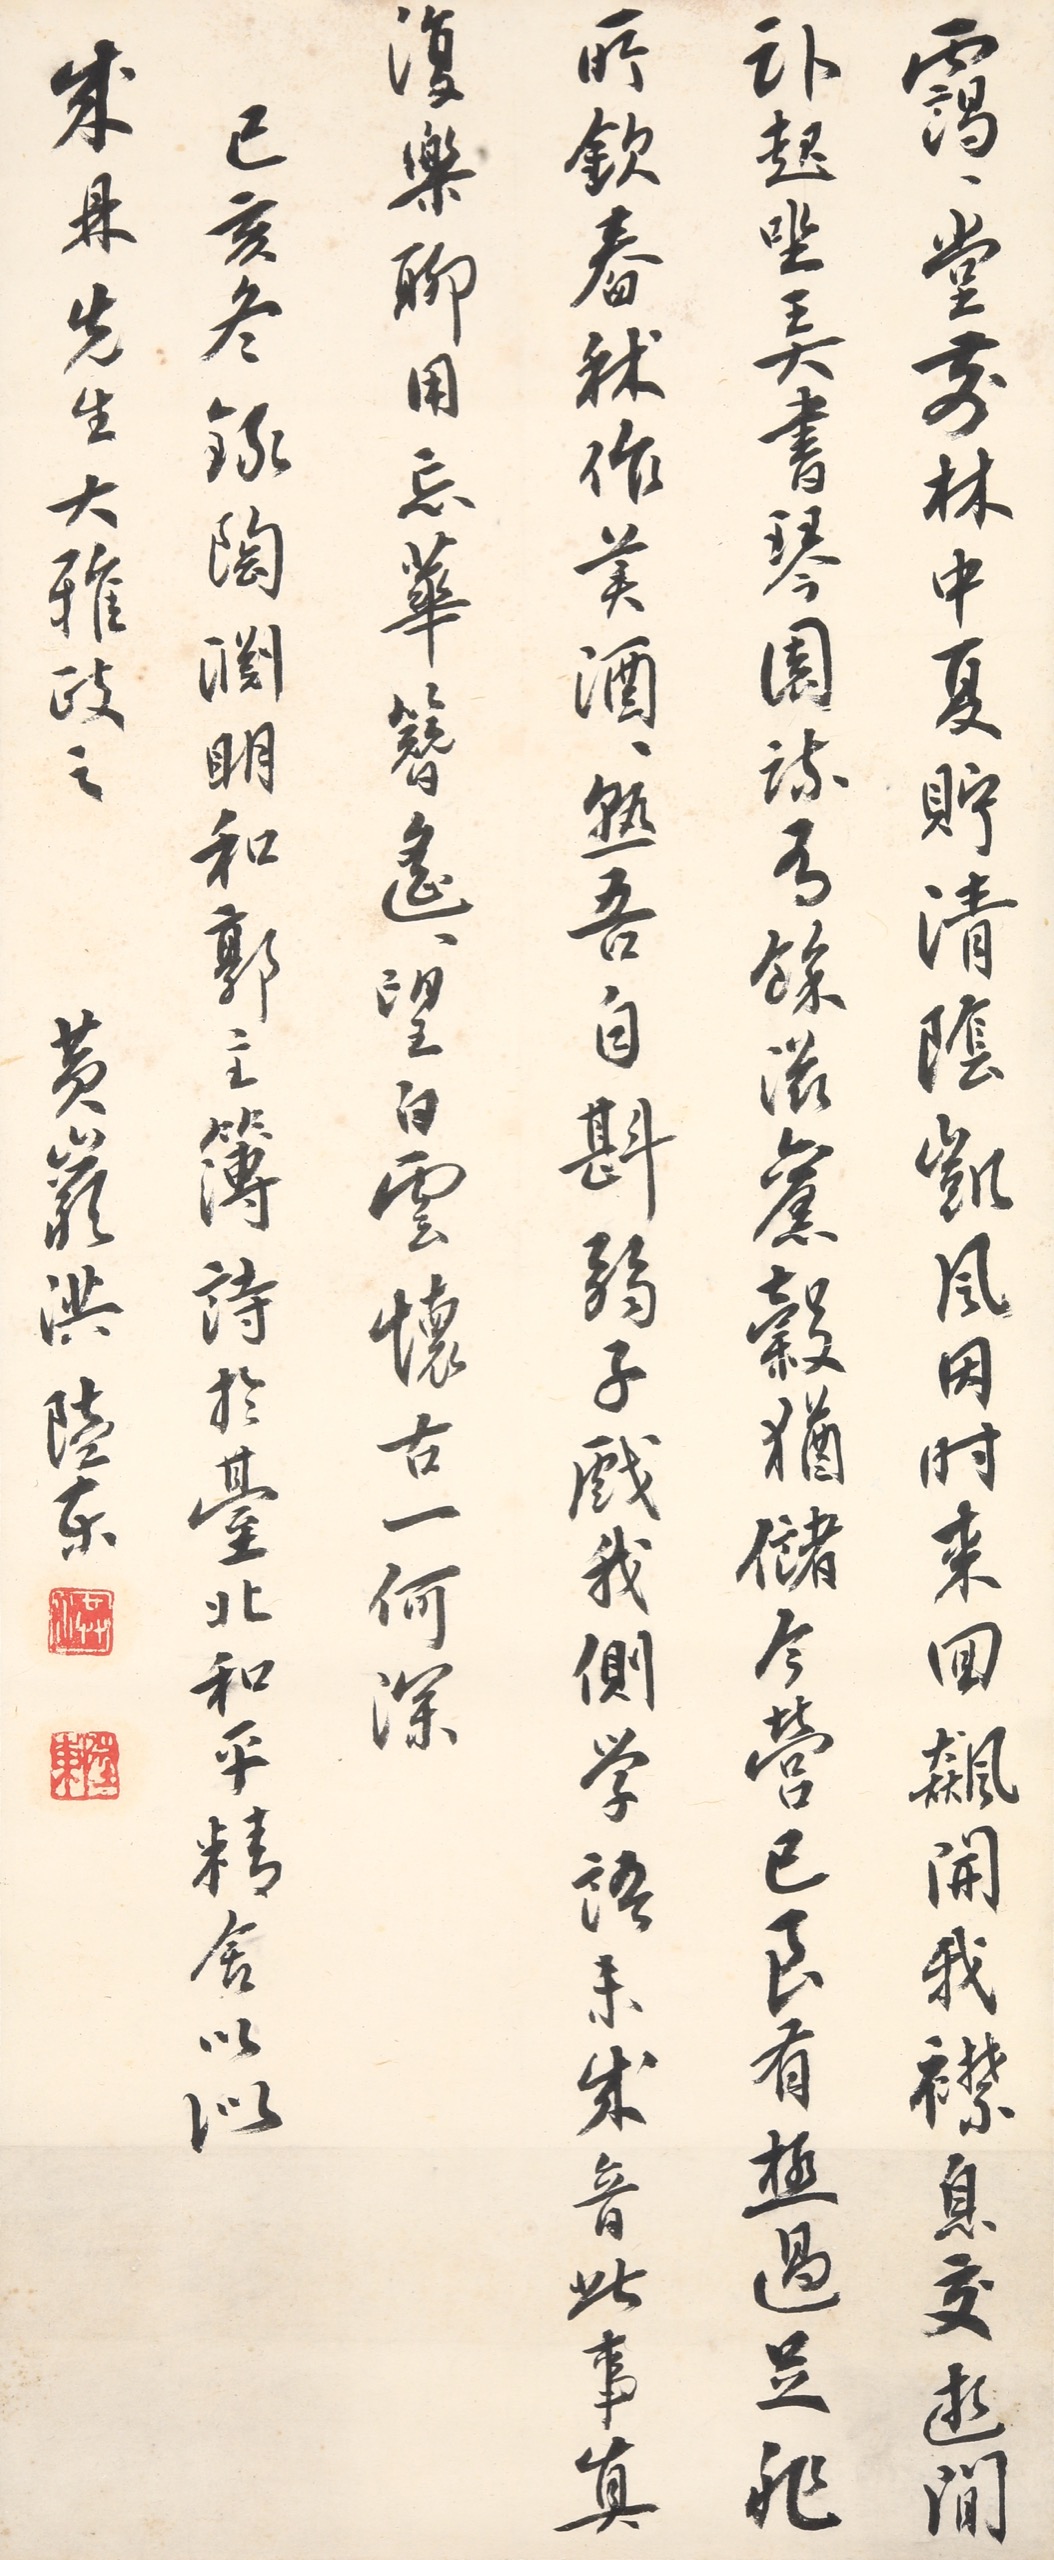 靄、堂前林中夏貯清陰凱风因时来回飆開我襟息交遊閒
臥起坐弄書琴園蔬有餘滋舊穀猶儲今營己良有極過足非
所欽舂秫作美酒、熟吾自斟弱子戲我側学語未成音此事真
復樂聊用忘華簪遙、望白雲懷古一何深
己亥冬錄陶淵明和郭主簿詩於臺北和平精舍以似
成𣏌先生大雅政之
黃巖洪陸東
陸東